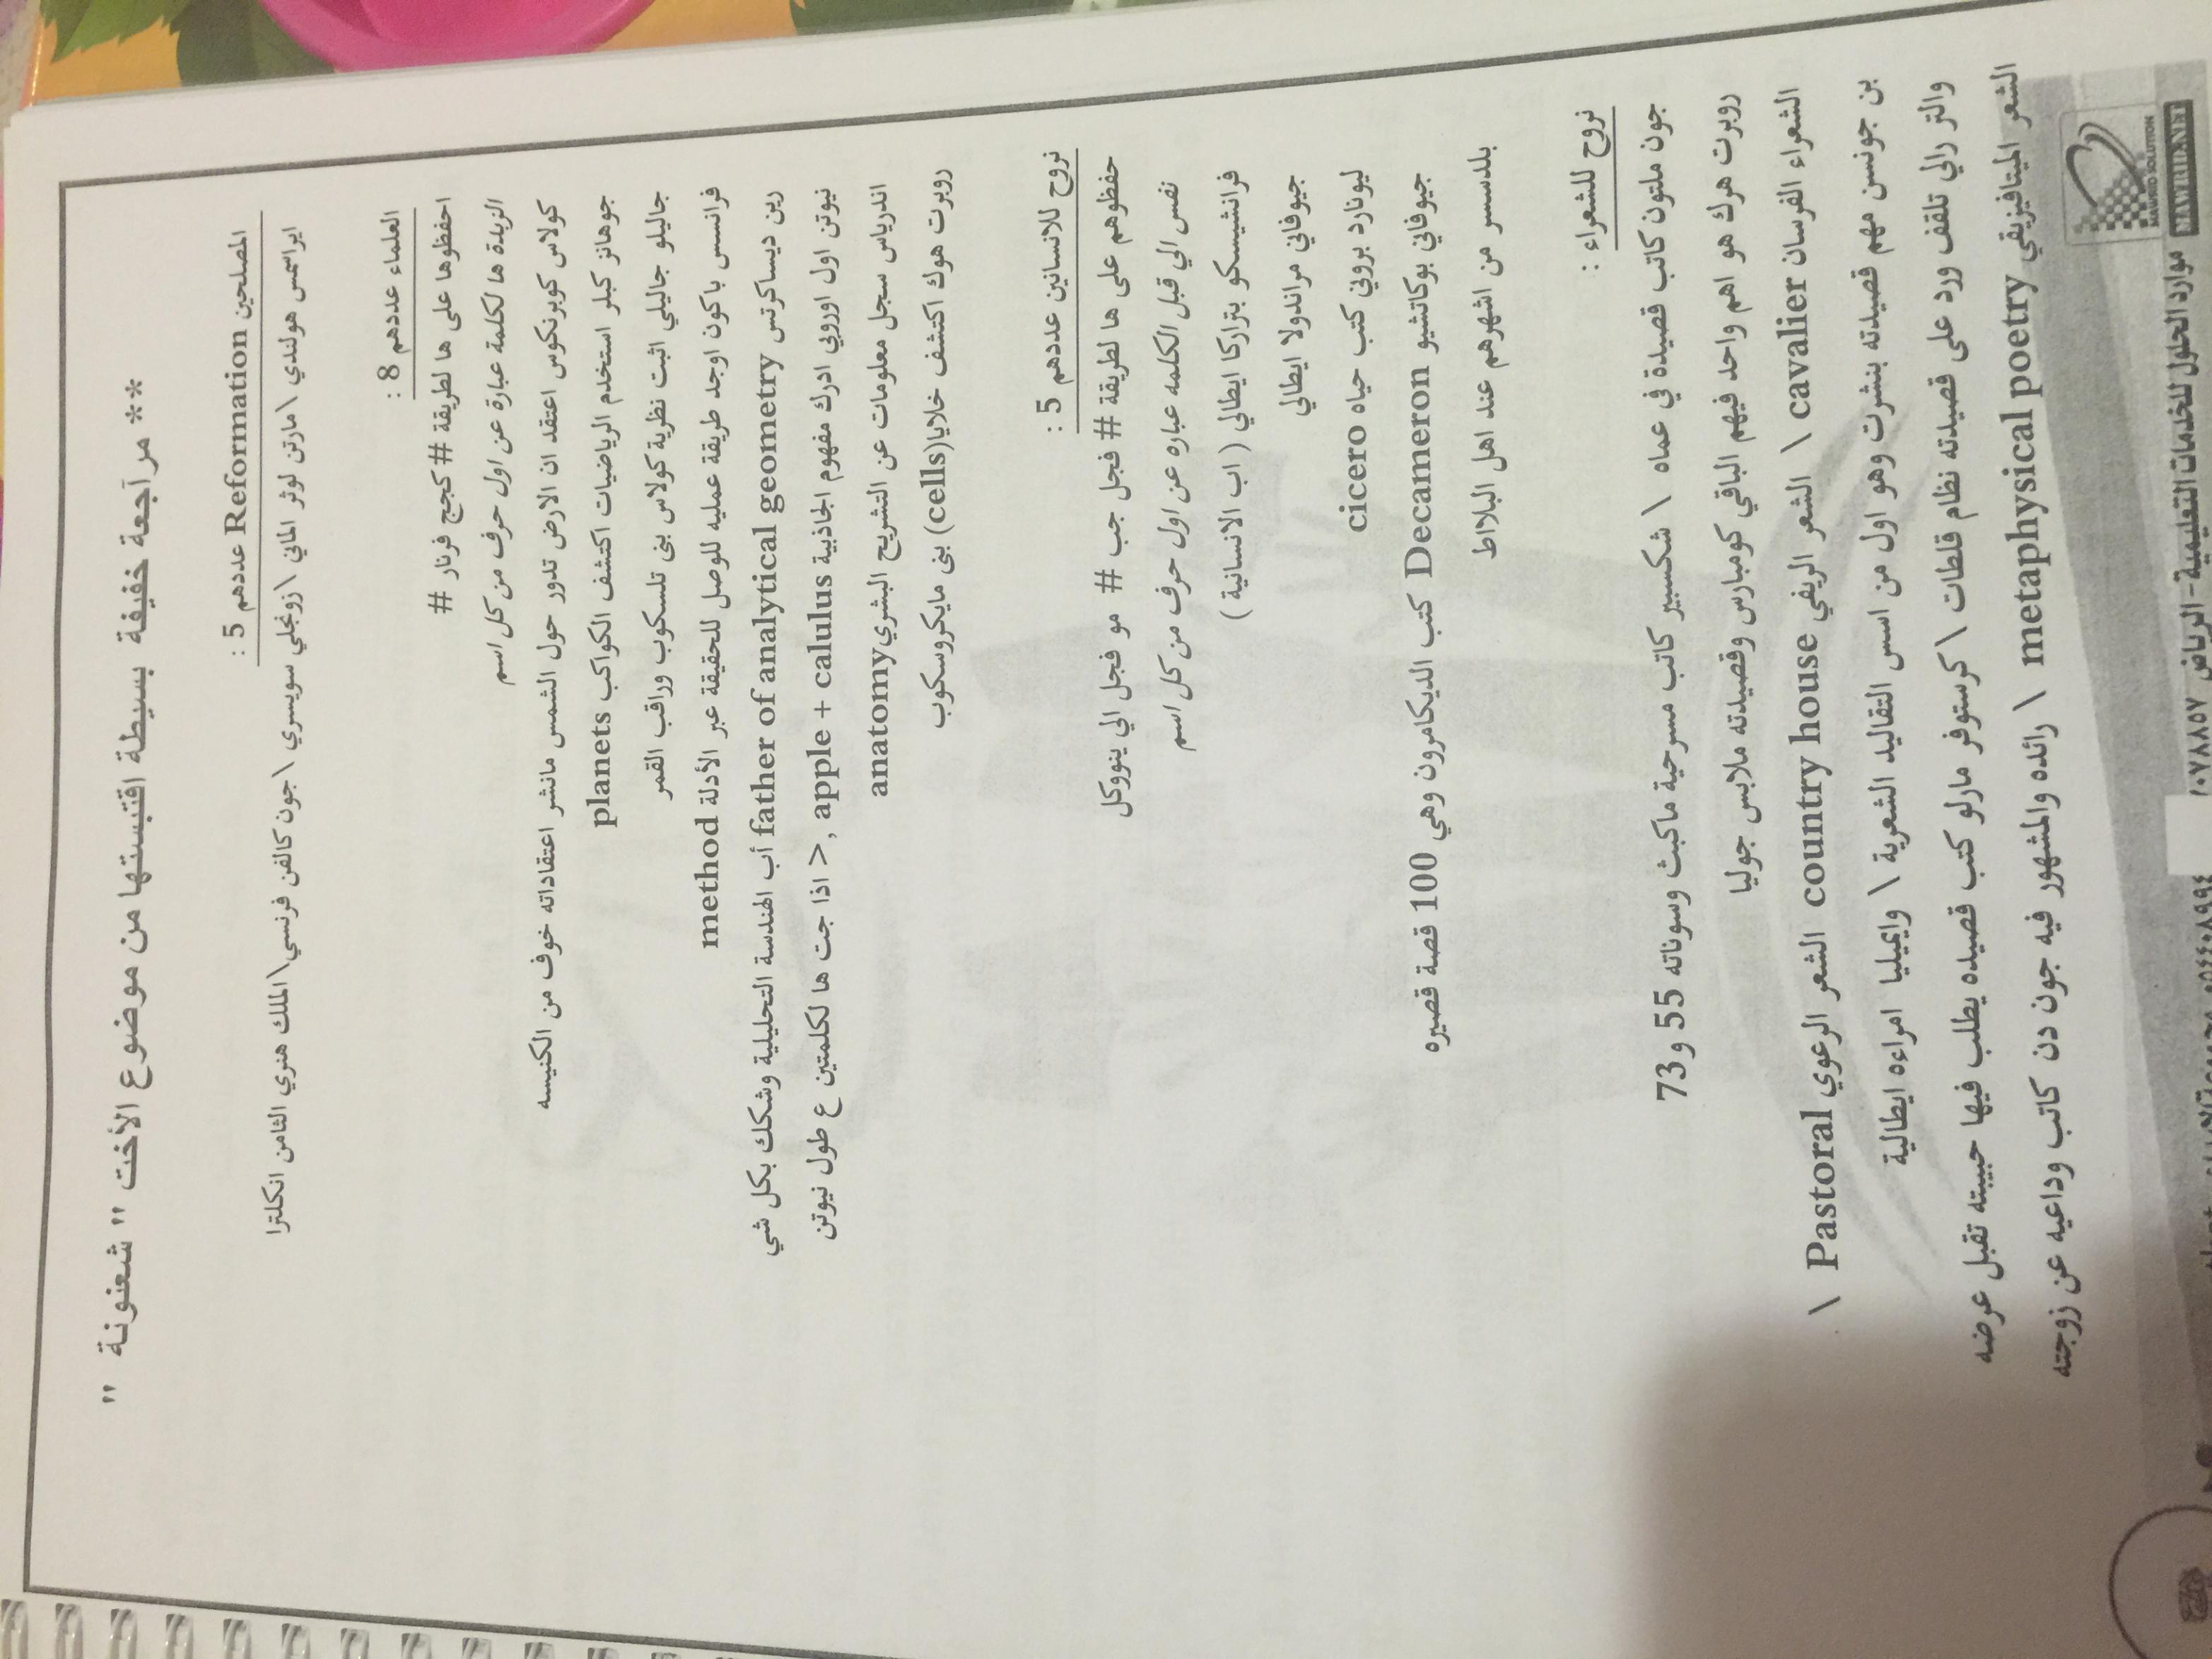 ** مراجعة خفيفة بسيطة اقتبستها من موضوع الأخت " شعنونة "
المصلحين Reformation عددهم 5 :
ايراسمس هولندي \ مارتن لوثر الماني \ زونجلي سويسري \ جون كالفن فرنسي \ الملك هنري الثامن انكلترا
العلماء عددهم 8 :
احفظوها على ها لطريقة # كججج فرنار #
الزبدة ها لكلمة عبارة عن اول حرف من كل اسم
كولاس كوبرنكوس اعتقد ان الارض تدور حول الشمس مانشر اعتقاداته خوف من الكنيسه
جوهانز كبلر استخدم الرياضيات اكتشف الكواكب planets
جاليلو جاليلي اثبت نظرية كولاس بنى تلسكوب وراقب القمر
فرانسس باكون اوجد طريقة عمليه للوصل للحقيقة عبر الأدلة method
رين ديساكرتس father of analytical geometry أب الهندسة التحليلية وشكك بكل شي
نيوتن اول اوروبي ادرك مفهوم الجاذبية apple + calulus ,> اذا جت ها لكلمتين ع طول نيوتن
اندرياس سجل معلومات عن التشريح البشري anatomy
روبرت هوك اكتشف خلايا(cells) بنى مايكروسكوب
نروح للانسانين عددهم 5 :
حفظوهم على ها لطريقة # فجل جب # مو فجل الي ينووكل
نفس الي قبل الكلمه عباره عن اول حرف من كل اسم
فرانشيسكو بتراركا ايطالي ( اب الانسانية )
جيوفاني مراندولا ايطالي
ليونارد بروني كتب حياه cicero
جيوفاني بوكاتشيو Decameron كتب الديكامرون وهي 100 قصة قصيره
بلدسسر من اشهرهم عند اهل البلااط
نروح للشعراء :
جون ملتون كاتب قصيدة في عماه \ شكسبير كاتب مسرحية ماكبث وسوناته 55 و 73
روبرت هرك هو اهم واحد فيهم الباقي كومبارس وقصيدته ملابس جوليا
الشعراء الفرسان cavalier \ الشعر الريفي country house الشعر الرعوي Pastoral \
بن جونسن مهم قصيدته بنشرت وهو اول من اسس التقاليد الشعرية \ وايميليا امراءه ايطالية
والتر رالي تلقف ورد على قصيدته نظام قلطات \ كرستوفر مارلو كتب قصيده يطلب فيها حبيبته تقبل عرضه
الشعر الميتافيزيقي metaphysical poetry \ رائده والمشهور فيه جون دن كاتب وداعيه عن زوجته
MAWRID SOLUTION
MAWRID.NET
موارد الحلول للخدمات التعليمية - الرياض